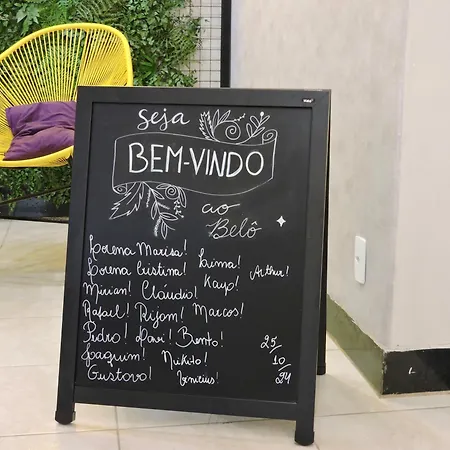 Seja
BEM-VINDO
ao
Belô
Lorena Marisa! Laima!
Lorena Cristina! Arthur!
Mirian! Cláudio! Kayo!
Rafael! Rijom! Marcos!
Pedro! Davi! Bento!
Joaquim! Nikito!
Gustavo! Vinitius!
25/10/24